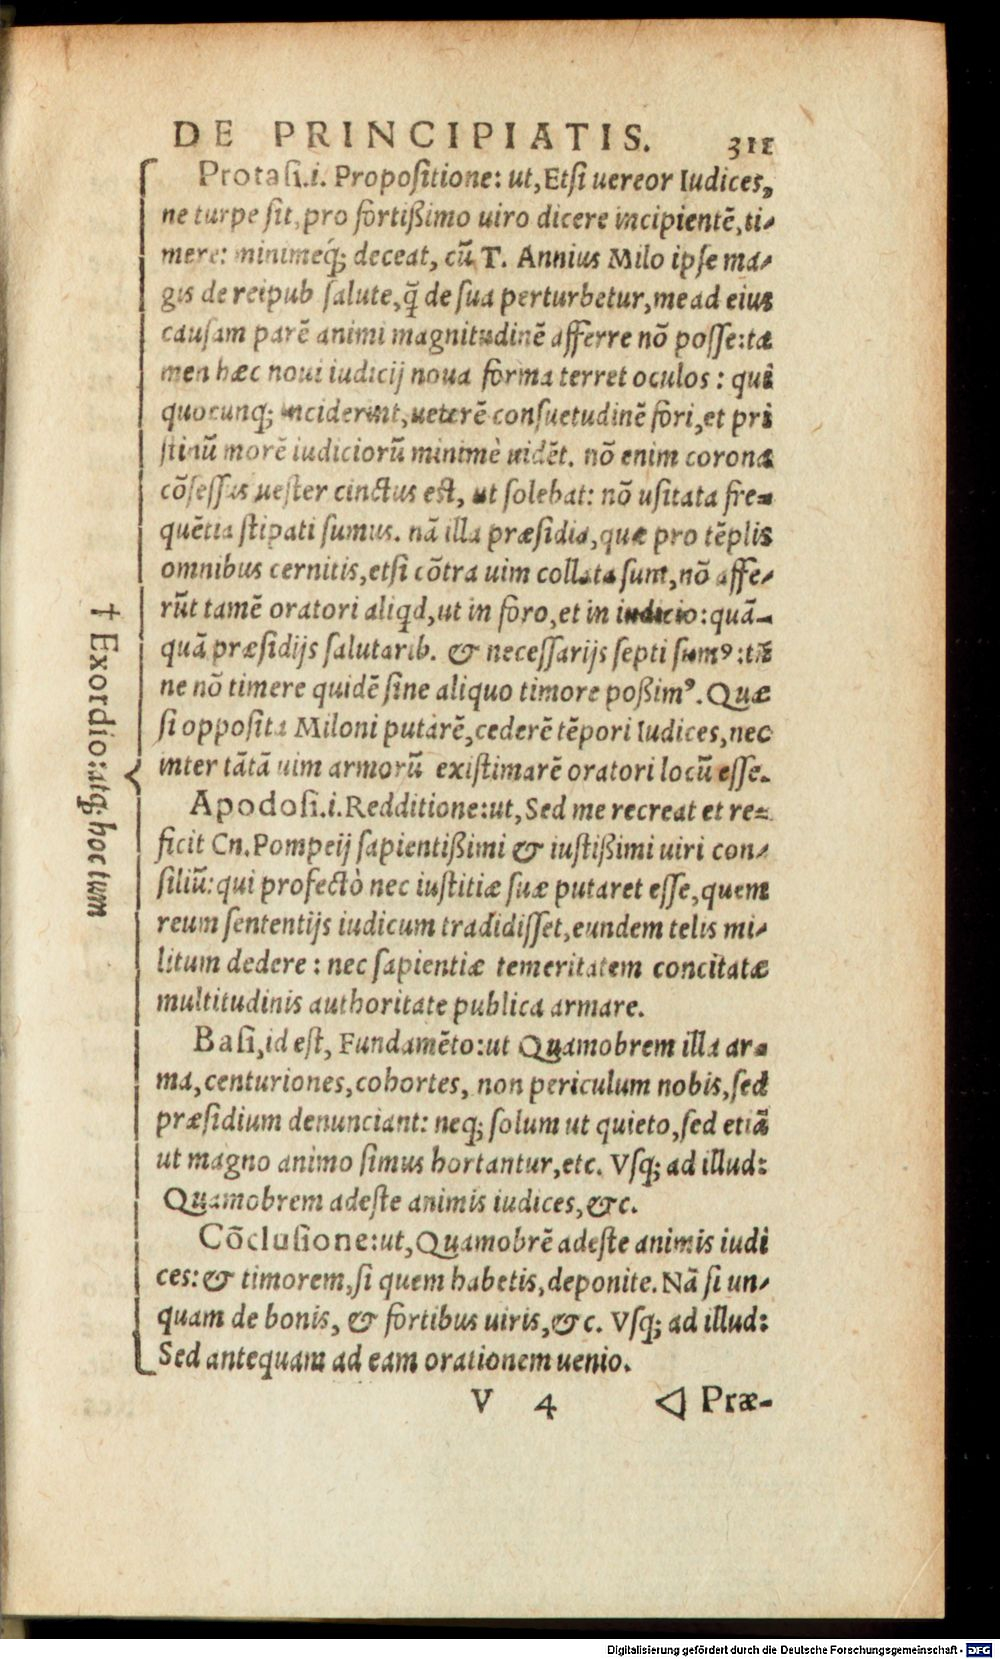 DE PRINCIPIATIS. 311
Protasi.i. Propositione: ut, Etsi uereor Iudices,
ne turpe sit, pro fortißimo uiro dicere incipientē, ti-
mere: minimeq́; deceat, cū T. Annius Milo ipse ma-
gis de reipub salute, q̃ de sua perturbetur, me ad eius
causam parē animi magnitudinē afferre nō posse: ta
men hæc noui iudicij noua forma terret oculos: qui
quocunq; inciderint, ueterē consuetudinē fori, et pri
stinū morē iudiciorū minimè uidēt. nō enim corona
cōsessus uester cinctus est, ut solebat: nō usitata fre-
quētia stipati sumus. nā illa præsidia, quæ pro tēplis
omnibus cernitis, etsi cōtra uim collata sunt, nō affe-
rūt tamē oratori aliqd, ut in foro, et in iudicio: quā-
quā præsidijs salutarib. & necessarijs septi sumꝰ: tñ
ne nō timere quidē sine aliquo timore poßimꝰ. Quæ
si opposita Miloni putarē, cederē tēpori Iudices, nec
inter tātā uim armorū existimarē oratori locū esse.
Apodosi.i. Redditione: ut, Sed me recreat et re-
ficit Cn. Pompeij sapientißimi & iustißimi uiri con-
siliū: qui profectò nec iustitiæ suæ putaret esse, quem
reum sententijs iudicum tradidisset, eundem telis mi-
litum dedere: nec sapientiæ temeritatem concitatæ
multitudinis authoritate publica armare.
Basi, id est, Fundamēto: ut Quamobrem illa ar-
ma, centuriones, cohortes, non periculum nobis, sed
præsidium denunciant: neq; solum ut quieto, sed etiā
ut magno animo simus hortantur, etc. Vsq; ad illud:
Quamobrem adeste animis iudices, &c.
Cōclusione: ut, Quamobrē adeste animis iudi
ces: & timorem, si quem habetis, deponite. Nā si un-
quam de bonis, & fortibus uiris, &c. Vsq; ad illud:
Sed antequam ad eam orationem uenio.
† Exordio: atq; hoc tum
V 4 ◁ Præ-
Digitalisierung gefördert durch die Deutsche Forschungsgemeinschaft - DFG